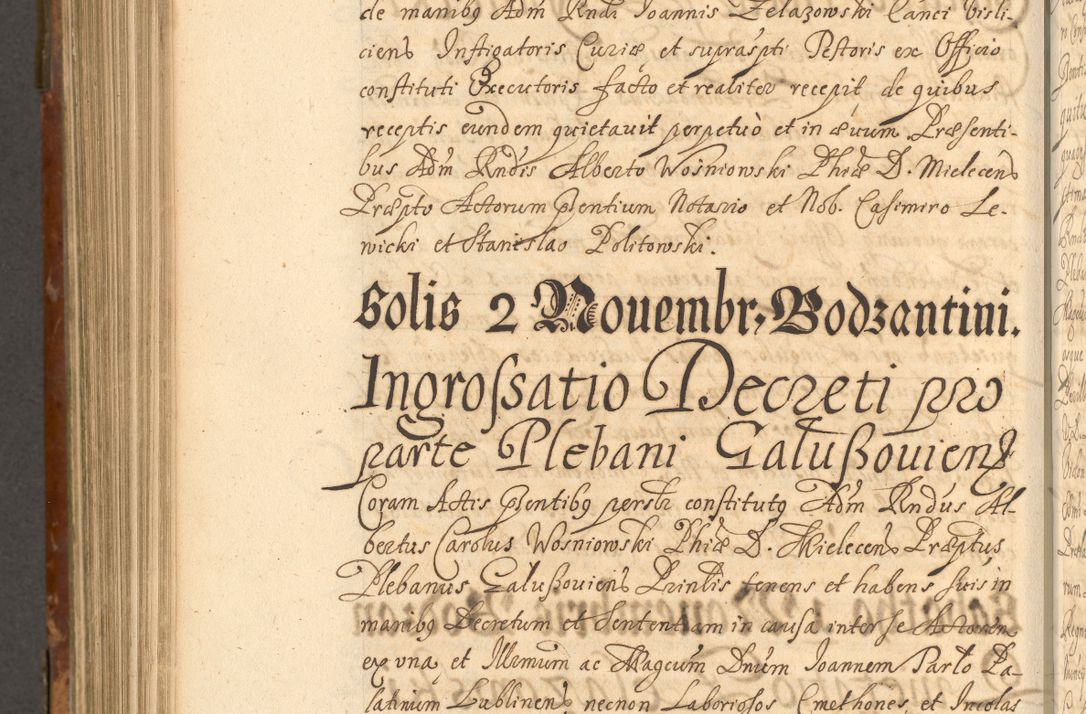 de manibq Adm Rndi Joannis Zelazowski Canci Visli-
ciens Instigatoris Curiæ et supraspti Pestoris ex Officio
constituti Executoris facto et realiter recepit de quibus
receptis eundem quietavit perpetuò et in ævum Præsenti-
bus Adm Rndis Alberto Wosniowski Phiæ D. Mielecens
Præpto Actorum Pntium Notario et Nob. Casimiro Le-
wicki et Stanislao Politowski.
Solis 2 Nouembr: Bodzantini.
Ingrossatio Decreti pro
parte Plebani Galußouiens
Coram Actis Pntibq persltr constitutq Adm Rndus Al-
bertus Carolus Wosniowski Phiæ D. Mielecens Præptus,
Plebanus Galußouiens Prinlis tenens et habens suis in
manibq Decretum et Sententiam in causa inter se Actorem
ex una et Illmum ac Magcum Dnum Joannem Parlo Pa-
latinum Lublinens necnon Laboriosos Cmethones et Incolas